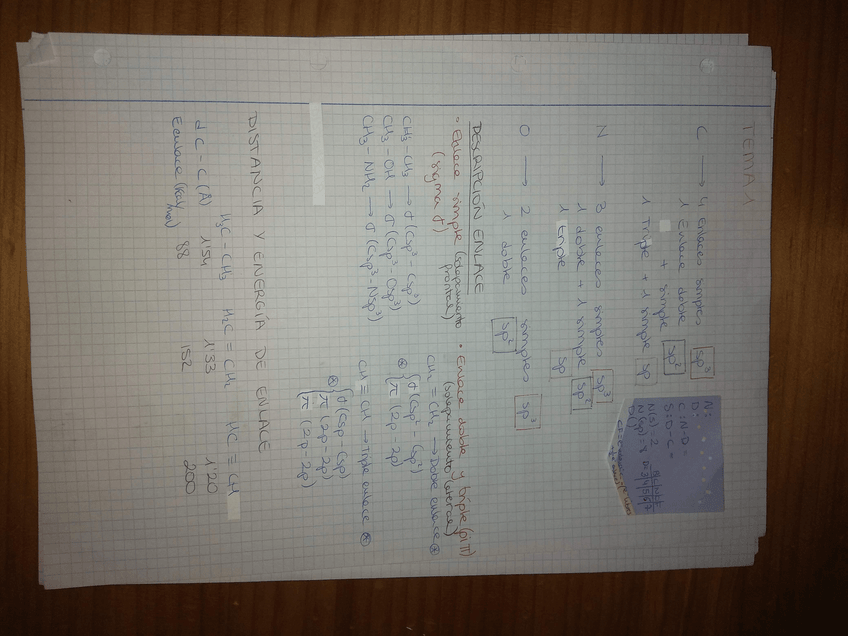 TEMA 1
C → 4 Enlaces simples sp³
1 Enlace doble
+ simple sp²
1 Triple + 1 simple sp
N → 3 enlaces simples sp³
1 doble + 1 simple sp²
1 triple sp
O → 2 enlaces simples sp³
1 doble sp²
N:
D:
C: N-D=
S: D-C=
N(s) 2
N(sp) = 8
DESCRIPCIÓN ENLACE
• Enlace simple (solapamiento frontal)
(sigma σ)
CH₃-CH₃ → σ (Csp³-Csp³)
CH₃-OH → σ (Csp³-Osp³)
CH₃-NH₂ → σ (Csp³-Nsp³)
• Enlace doble y triple (pi π)
(solapamiento lateral)
CH₂=CH₂ → Doble enlace ⊗
⊗ { σ (Csp²-Csp²)
π (2p-2p)
CH≡CH → Triple enlace ⊗
⊗ { σ (Csp-Csp)
π (2p-2p)
π (2p-2p)
DISTANCIA Y ENERGÍA DE ENLACE
H₃C-CH₃ H₂C=CH₂ HC≡CH
d C-C (Å) 1'54 1'33 1'20
Eenlace (Kcal/mol) 88 152 200